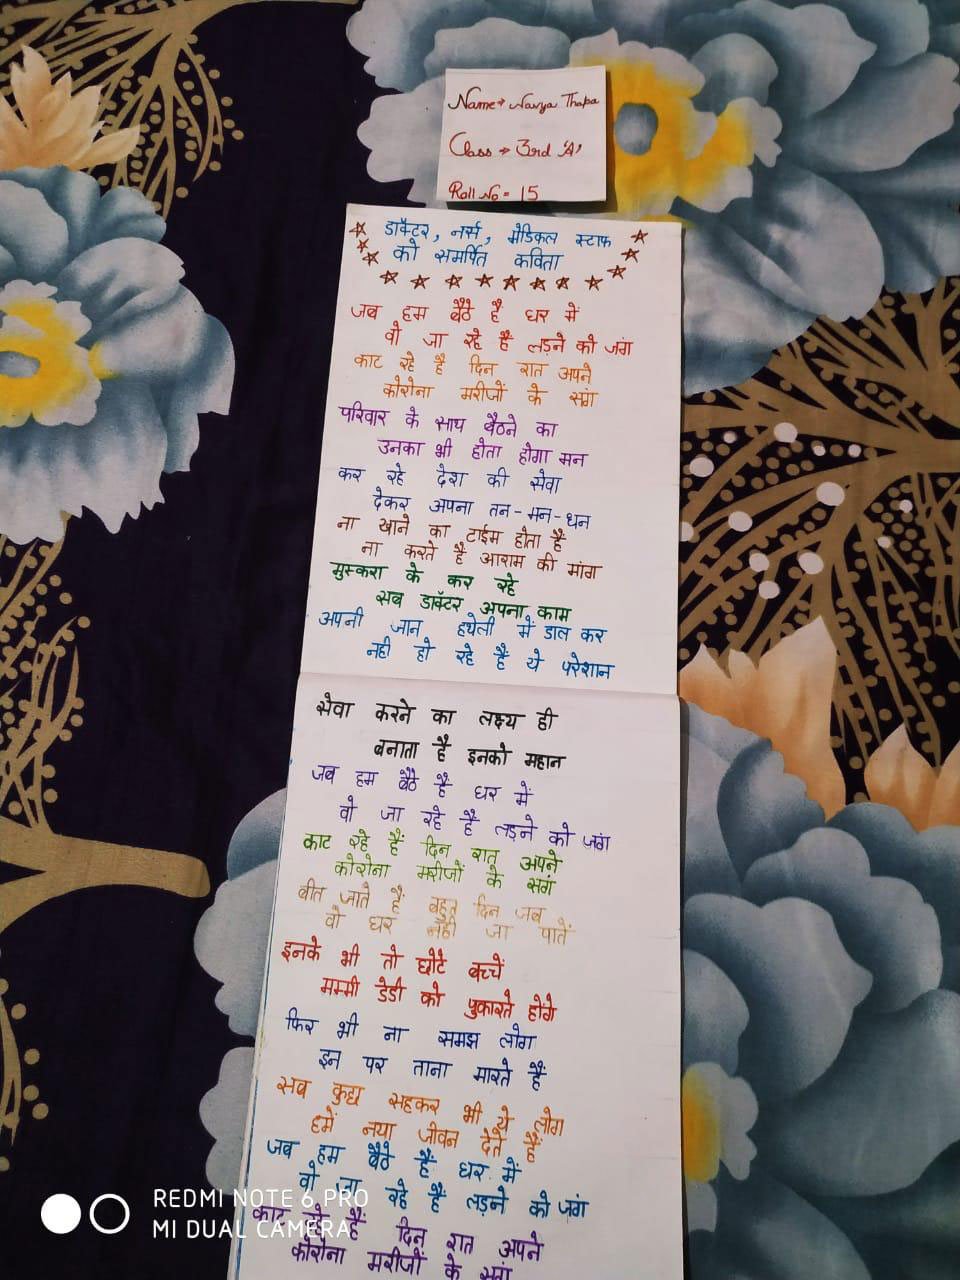 Name→ Navya Thapa
Class → 3rd 'A'
Roll No = 15
डॉक्टर, नर्स, मेडिकल स्टाफ
को समर्पित कविता
जब हम बैठे है घर में
वो जा रहे है लड़ने को जंग
काट रहे है दिन रात अपने
कोरोना मरीजों के संग
परिवार के साथ बैठने का
उनका भी होता होगा मन
कर रहे देश की सेवा
देकर अपना तन-मन-धन
ना खाने का टाईम होता है
ना करते है आराम की मांग
मुस्करा के कर रहे
सब डॉक्टर अपना काम
अपनी जान हथेली में डाल कर
नही हो रहे है ये परेशान
सेवा करने का लक्ष्य ही
बनाता है इनको महान
जब हम बैठे है घर में
वो जा रहे है लड़ने को जंग
काट रहे हैं दिन रात अपने
कोरोना मरीजों के संग
बीत जाते हैं बहुत दिन जब
वो घर नही जा पातें
इनके भी तो छोटे बच्चें
मम्मी डेडी को पुकारते होंगे
फिर भी ना समझ लोग
इन पर ताना मारते हैं
सब कुछ सहकर भी ये लोग
हमें नया जीवन देते हैं
जब हम बैठे हैं घर में
वो जा रहे हैं लड़ने को जंग
काट रहे हैं दिन रात अपने
कोरोना मरीजों के संग
REDMI NOTE 6 PRO
MI DUAL CAMERA